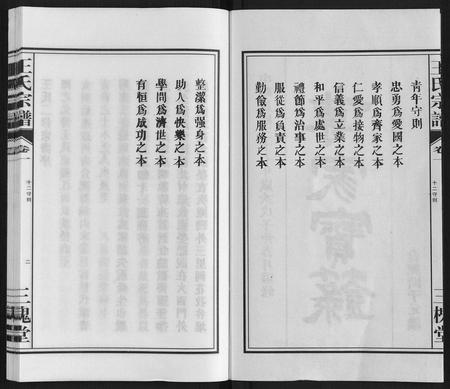 王氏宗譜
卷一
十二守則
三槐堂
青年守則
忠勇爲愛國之本
孝順爲齊家之本
仁愛爲接物之本
信義爲立業之本
和平爲處世之本
禮節爲治事之本
服從爲負責之本
勤儉爲服務之本
整潔爲强身之本
助人爲快樂之本
學問爲濟世之本
有恒爲成功之本
王氏宗譜
卷一
十二守則
二
三槐堂